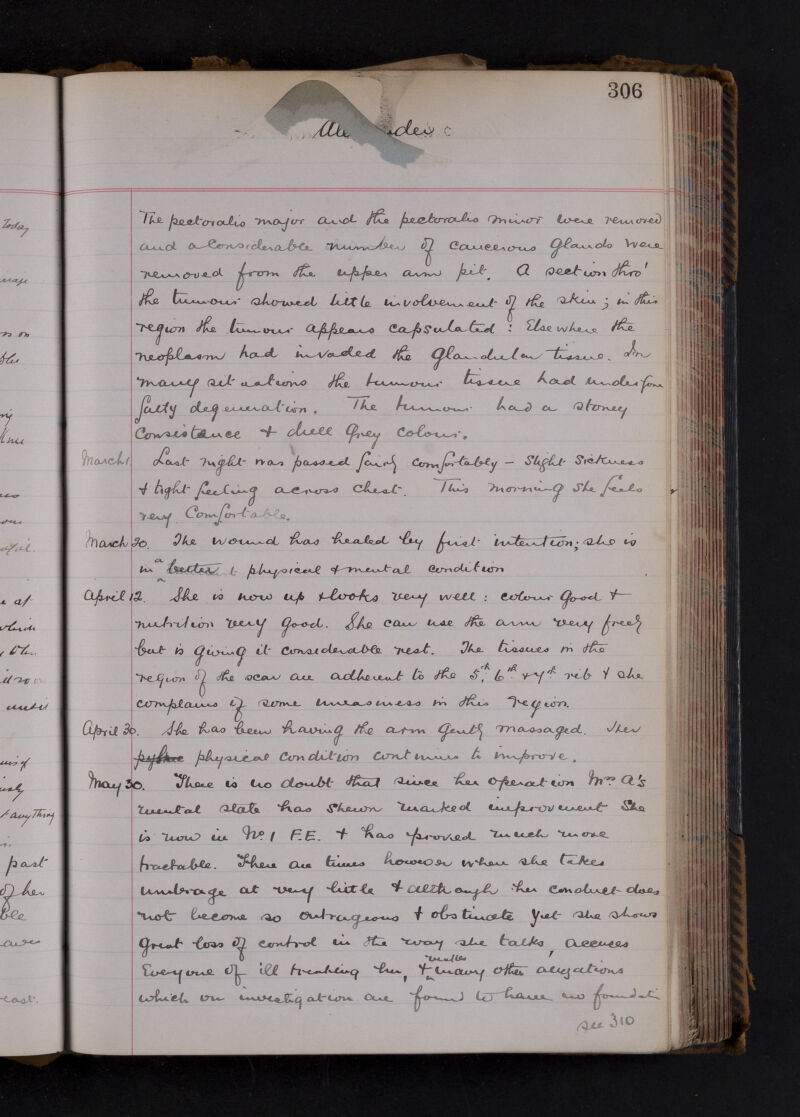 306
Ale ander
The pectoralis major and the pectoralis minor were removed
and a considerable number of cancerous glands were
removed from the upper arm pit. A section thro'
the tumour showed little involvement of the skin; in this
region the tumour appears capsulated: Elsewhere the
neoplasm had invaded the glandular tissue. In
many situations the tumour tissue had undergone
fatty degeneration. The tumour had a stoney
consistence & dull grey colour.
March 1 Last night was passed fairly comfortably – slight sickness
& tight feeling across chest. This morning she feels
very comfortable.
March 30. The wound has healed by first intention; she is
in a better physical & mental condition
April 12. She is now up & looks very well: colour good &
nutrition very good. She can use the arm very freely
but is giving it considerable rest. The tissues in the
region of the scar are adherent to the 5th, 6th & 7th rib & she
complains of some uneasiness in this region.
April 30. She has been having the arm gently massaged. Her
physical condition continues to improve.
May 30. There is no doubt that since her operation Mrs A's
mental state has shewn marked improvement She
is now in No. 1 F.E. & has proved much more
tractable. There are times however when she takes
umbrage at very little & although her conduct does
not become so outrageous & obstinate yet she shows
great loss of control in the way she talks, accuses
Everyone of ill treating her, & makes many other allegations
which on investigation are found to have no foundati
see 310
Today
past
of her
ble